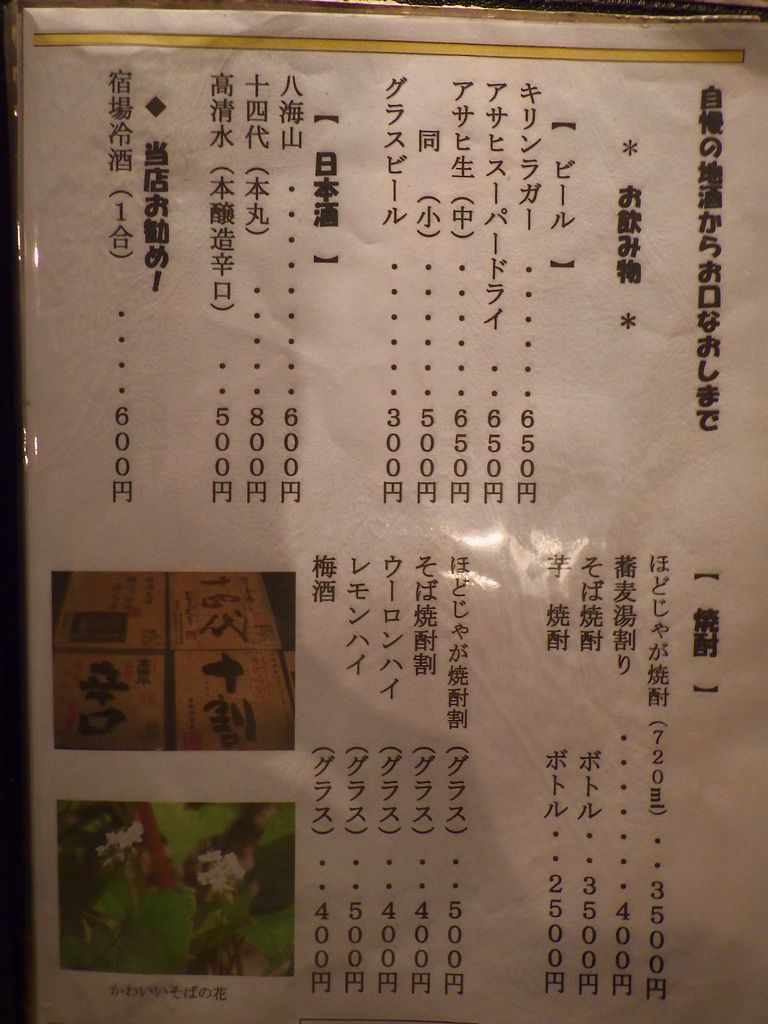 自慢の地酒からお口なおしまで
＊ お飲み物 ＊
【 ビール 】
キリンラガー・・・・・・650円
アサヒスーパードライ・・650円
アサヒ生（中）・・・・・650円
同（小）・・・・・500円
グラスビール・・・・・・300円
【 日本酒 】
八海山・・・・・・・・・600円
十四代（本丸）・・・・・800円
高清水（本醸造辛口）・・500円
◆ 当店お勧め！
宿場冷酒（1合）・・・・600円
【 焼酎 】
ほどじゃが焼酎（720ml）・・3500円
蕎麦湯割り・・・・・・・400円
そば焼酎 ボトル・・3500円
芋 焼酎 ボトル・・2500円
ほどじゃが焼酎割（グラス）・・500円
そば焼酎割（グラス）・・400円
ウーロンハイ（グラス）・・400円
レモンハイ（グラス）・・500円
梅酒（グラス）・・400円
十四代
辛口
十割
かわいいそばの花